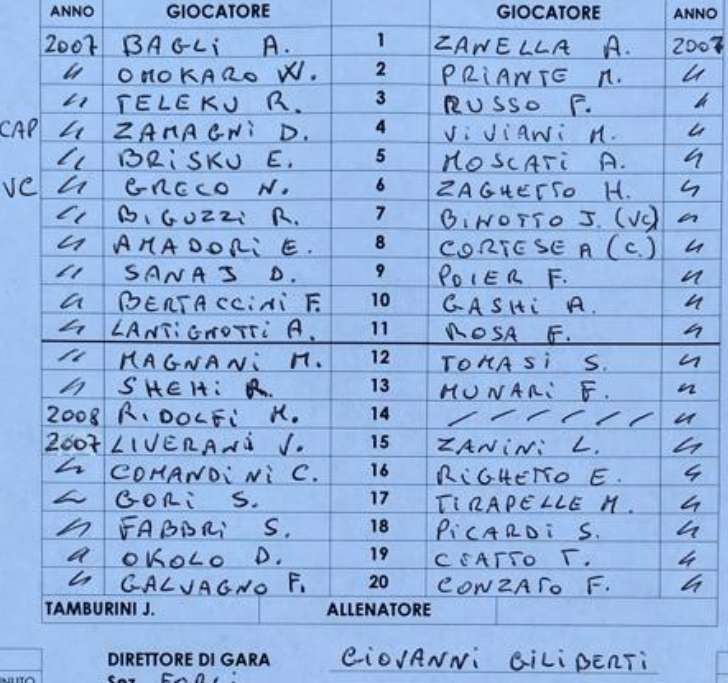 ANNO GIOCATORE GIOCATORE ANNO
2007 BAGLI A. 1 ZANELLA A. 2007
" OMOKARO W. 2 PRIANTE M. "
" TELEKU R. 3 RUSSO F. "
CAP " ZAMAGNI D. 4 VIVIANI M. "
" BRISKU E. 5 MOSCATI A. "
VC " GRECO N. 6 ZAGHETTO M. "
" BIGUZZI R. 7 BINOTTO J. (VC) "
" AMADORI E. 8 CORTESE A (C.) "
" SANAJ D. 9 POIER F. "
" BERTACCINI F. 10 GASHI A. "
" LANTIGNOTTI A. 11 ROSA F. "
" MAGNANI M. 12 TOMASI S. "
" SHEHI R. 13 MUNARI F. "
2008 RIDOLFI M. 14 / / / / / / / "
2007 LIVERANI V. 15 ZANINI L. "
" COMANDINI C. 16 RIGHETTO E. "
" GORI S. 17 TIRAPELLE M. "
" FABBRI S. 18 PICARDI S. "
" OKOLO D. 19 CEATTO T. "
" GALVAGNO F. 20 CONZATO F. "
TAMBURINI J. ALLENATORE
DIRETTORE DI GARA GIOVANNI GILIBERTI
Sez FORLI